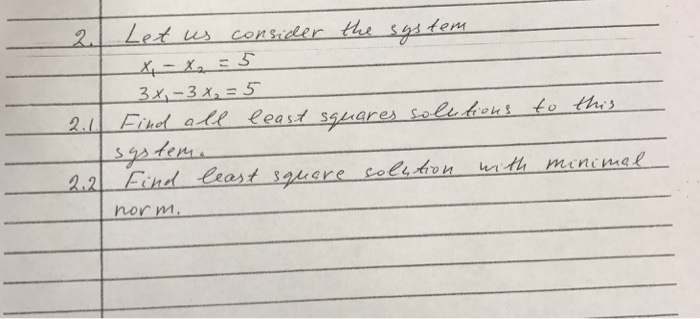 2. Let us consider the system
x₁ - x₂ = 5
3x₁ - 3x₂ = 5
2.1 Find all least squares solutions to this
system.
2.2 Find least square solution with minimal
norm.